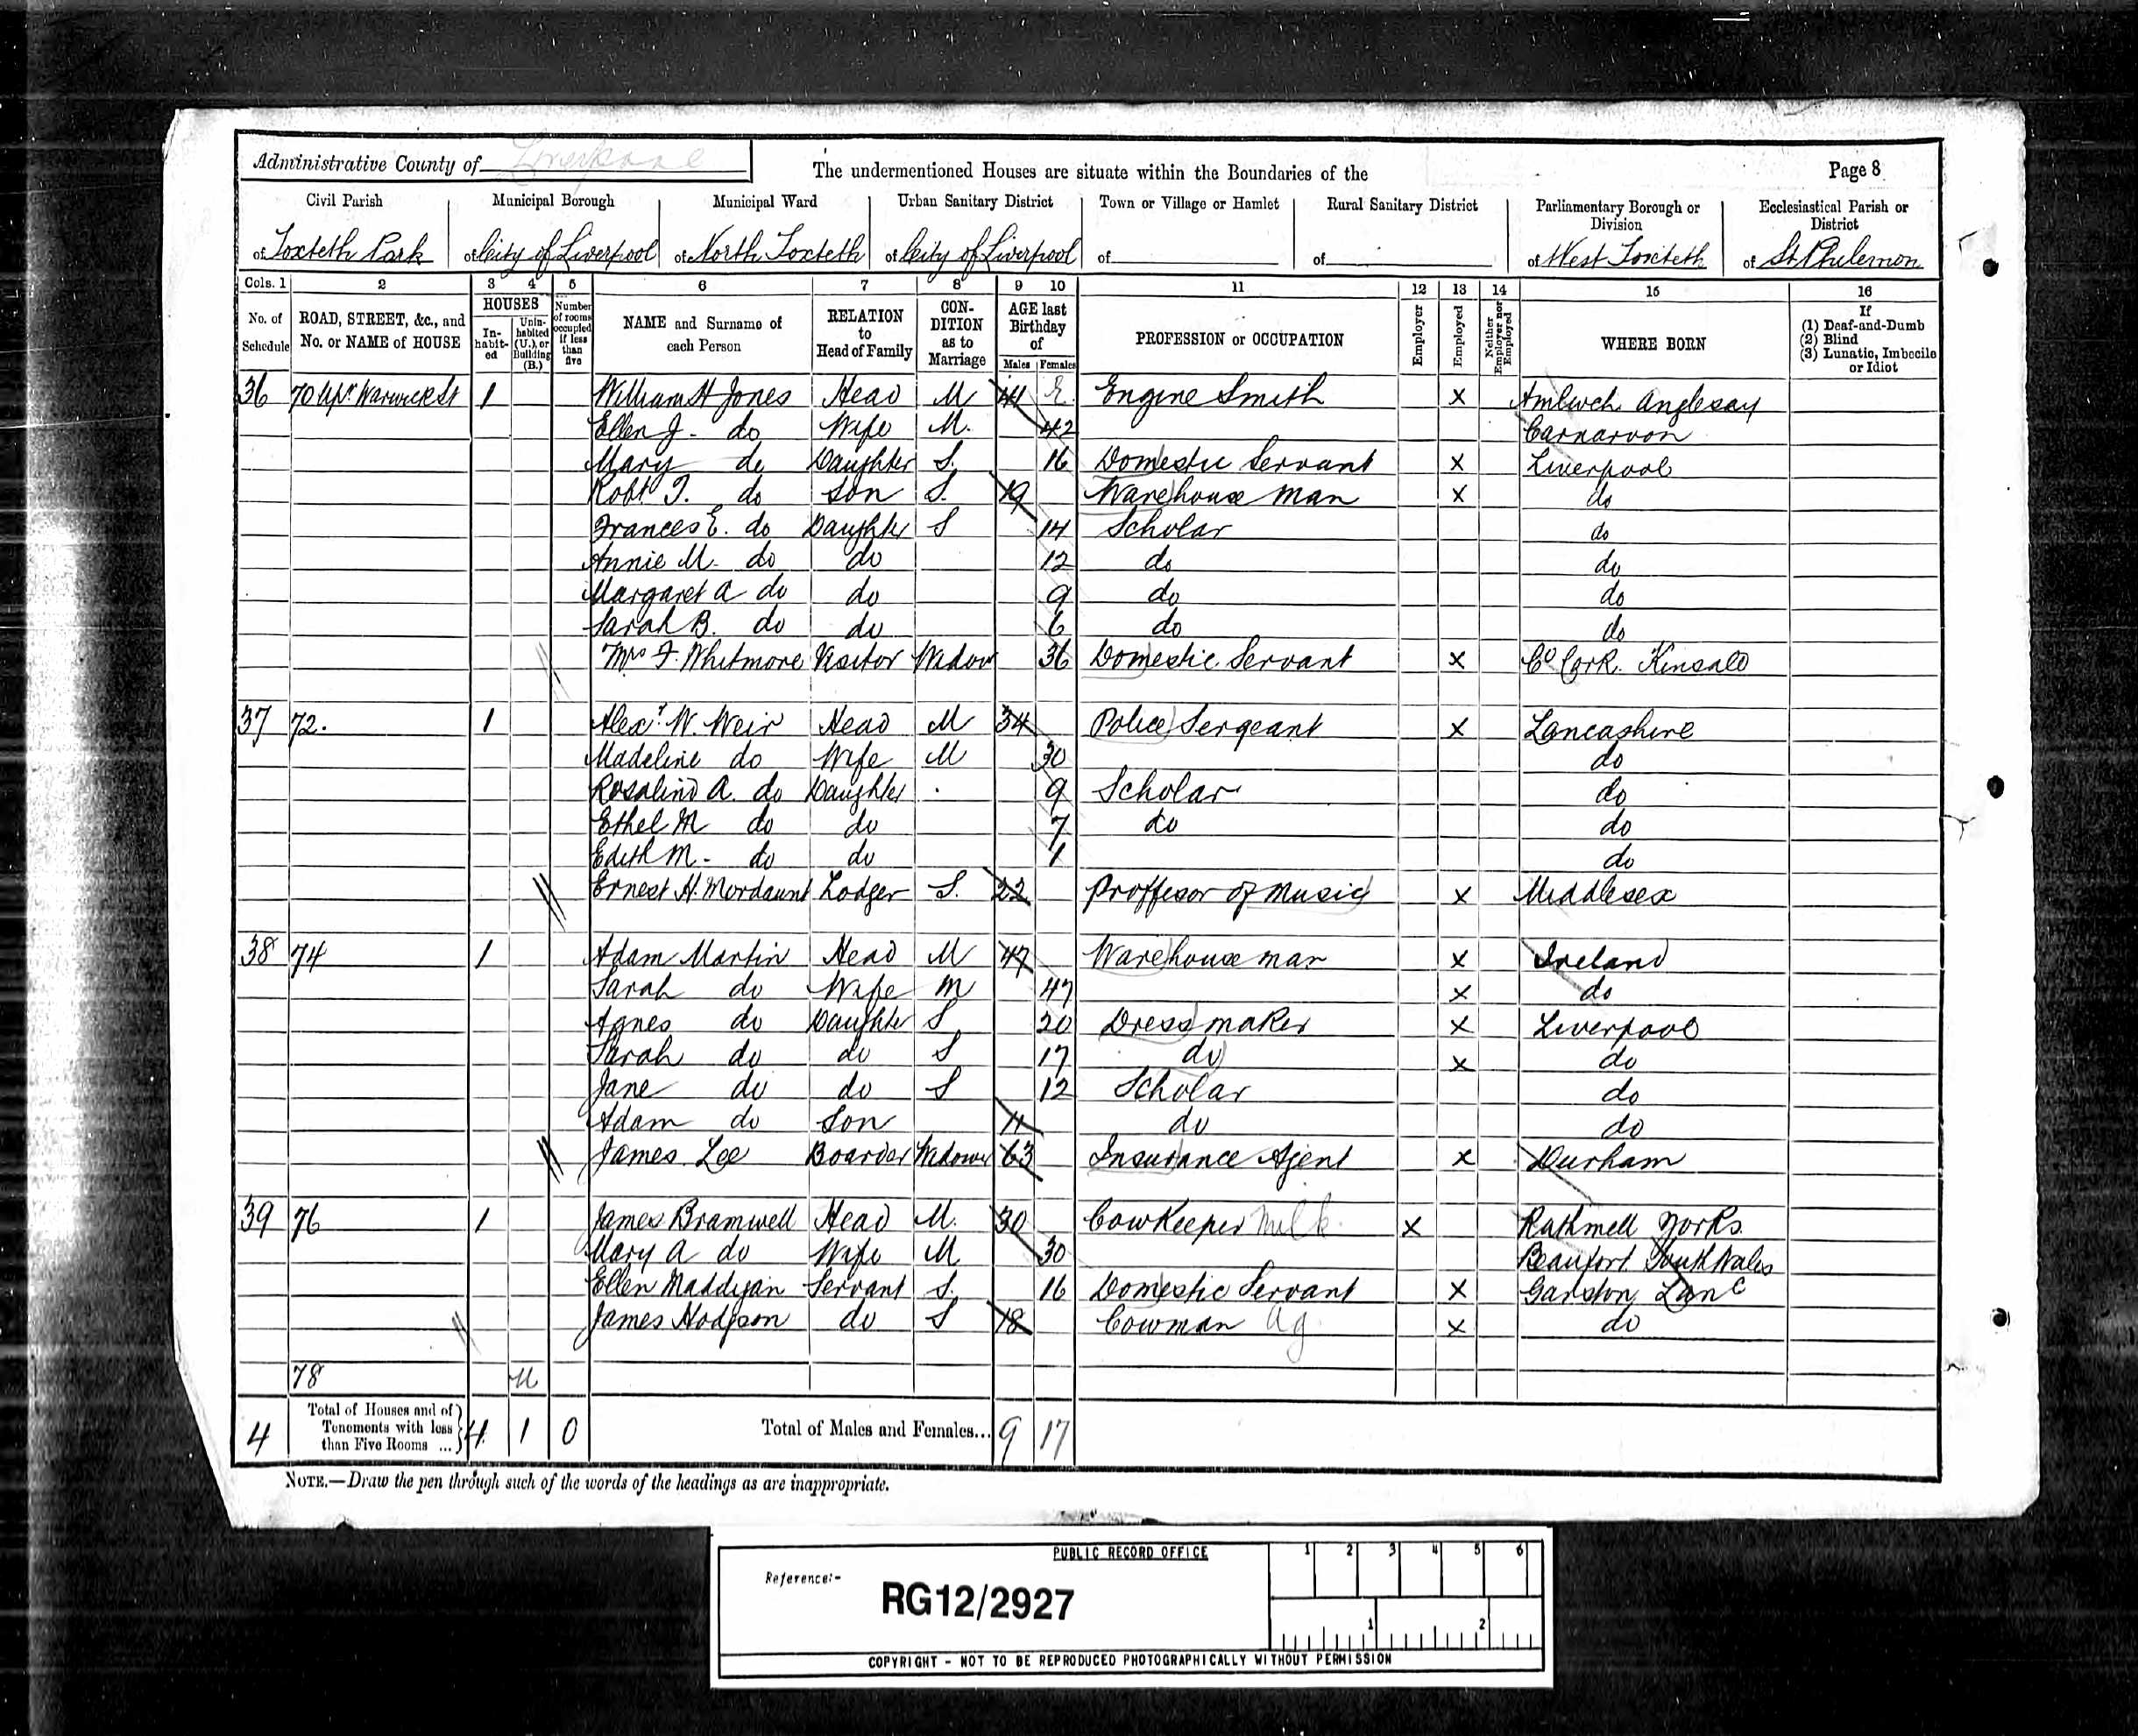 Administrative County of Liverpool
The undermentioned Houses are situate within the Boundaries of the
Page 8
Civil Parish Municipal Borough Municipal Ward Urban Sanitary District Town or Village or Hamlet Rural Sanitary District Parliamentary Borough or Division Ecclesiastical Parish or District
of Toxteth Park of City of Liverpool of North Toxteth of City of Liverpool of of of West Toxteth of St Philemon
Cols. 1 2 3 4 5 6 7 8 9 10 11 12 13 14 15 16
No. of Schedule ROAD, STREET, &c., and No. or NAME of HOUSE HOUSES Inhabited Uninhabited (U.), or Building (B.) Number of rooms occupied if less than five NAME and Surname of each Person RELATION to Head of Family CONDITION as to Marriage AGE last Birthday of Males Females PROFESSION or OCCUPATION Employer Employed Neither Employer nor Employed WHERE BORN If (1) Deaf-and-Dumb (2) Blind (3) Lunatic, Imbecile or Idiot
36 70 Upr Warwick St 1 William H Jones Head M 41 E Engine Smith X Amlwch Anglesay
Ellen J. do Wife M. 42 Carnarvon
Mary do Daughter S. 16 Domestic Servant X Liverpool
Robt T. do Son S. 19 Warehouse Man X do
Frances E. do Daughter S 14 Scholar do
Annie M. do do 12 do do
Margaret A do do 9 do do
Sarah B. do do 6 do do
Mrs F. Whitmore Visitor Widow 36 Domestic Servant X Co Cork. Kinsale
37 72. 1 Alexr W. Weir Head M 34 Police Sergeant X Lancashire
Madeline do Wife M 30 do
Rosalind A. do Daughter 9 Scholar do
Ethel M do do 7 do do
Edith M. do do 1 do
Ernest H. Mordaunt Lodger S. 22 Proffesor of Music X Middlesex
38 74 1 Adam Martin Head M 47 Warehouse man X Ireland
Sarah do Wife M 47 X do
Agnes do Daughter S 20 Dress maker X Liverpool
Sarah do do S 17 do X do
Jane do do S 12 Scholar do
Adam do Son 11 do do
James Lee Boarder Widower 63 Insurance Agent X Durham
39 76 1 James Bramwell Head M. 30 CowKeeper Milk X Rathmell Yorks.
Mary A do Wife M 30 Beaufort South Wales
Ellen Servant S. 16 Domestic Servant X Garston Lanc
James Hodgson do S 18 Cowman Ag X do
78 U
4 Total of Houses and of Tenements with less than Five Rooms ... 4 1 0 Total of Males and Females... 9 17
NOTE.—Draw the pen through such of the words of the headings as are inappropriate.
PUBLIC RECORD OFFICE
1 2 3 4 5 6
Reference:-
RG12/2927
1 2
COPYRIGHT - NOT TO BE REPRODUCED PHOTOGRAPHICALLY WITHOUT PERMISSION